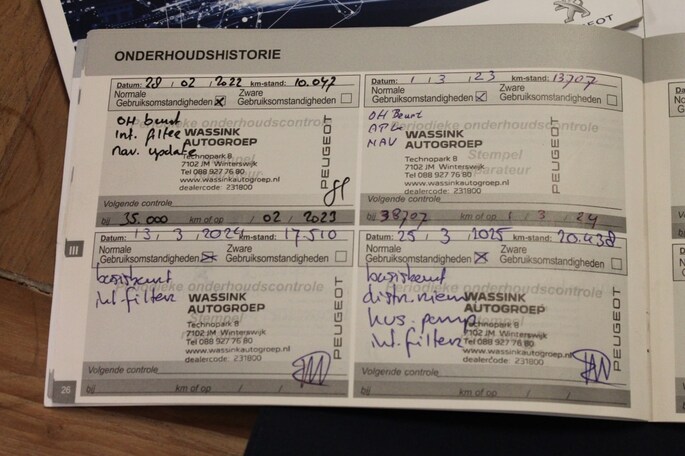 PEUGEOT
ONDERHOUDSHISTORIE
Datum: 28 / 02 / 2022 km-stand: 10.047
Normale Gebruiksomstandigheden
Zware Gebruiksomstandigheden
OH beurt
Int. filter
nav. update
Periodieke onderhoudscontrole
WASSINK
AUTOGROEP
Technopark 8
7102 JM Winterswijk
Tel 088 927 76 80
www.wassinkautogroep.nl
dealercode: 231800
PEUGEOT
Volgende controle
bij 35.000 km of op / 02 / 2023
Datum: 1 / 3 / 23 km-stand: 13707
Normale Gebruiksomstandigheden
Zware Gebruiksomstandigheden
OH Beurt
APK
NAV
Periodieke onderhoudscontrole
Stempel
WASSINK
AUTOGROEP
Technopark 8
7102 JM Winterswijk
Tel 088 927 76 80
www.wassinkautogroep.nl
dealercode: 231800
PEUGEOT
Volgende controle
bij 38707 km of op 1 / 3 / 24
III
Datum: 13 / 3 / 2024 km-stand: 17.510
Normale Gebruiksomstandigheden
Zware Gebruiksomstandigheden
basisbeurt
int. filter
Periodieke onderhoudscontrole
Stempel
WASSINK
AUTOGROEP
Technopark 8
7102 JM Winterswijk
Tel 088 927 76 80
www.wassinkautogroep.nl
dealercode: 231800
PEUGEOT
Volgende controle
bij km of op / /
Datum: 25 / 3 / 2025 km-stand: 20.438
Normale Gebruiksomstandigheden
Zware Gebruiksomstandigheden
basisbeurt
distr. riem
int. filter
Periodieke onderhoudscontrole
Stempel
WASSINK
AUTOGROEP
Technopark 8
7102 JM Winterswijk
Tel 088 927 76 80
www.wassinkautogroep.nl
dealercode: 231800
PEUGEOT
Volgende controle
bij km of op / /
26